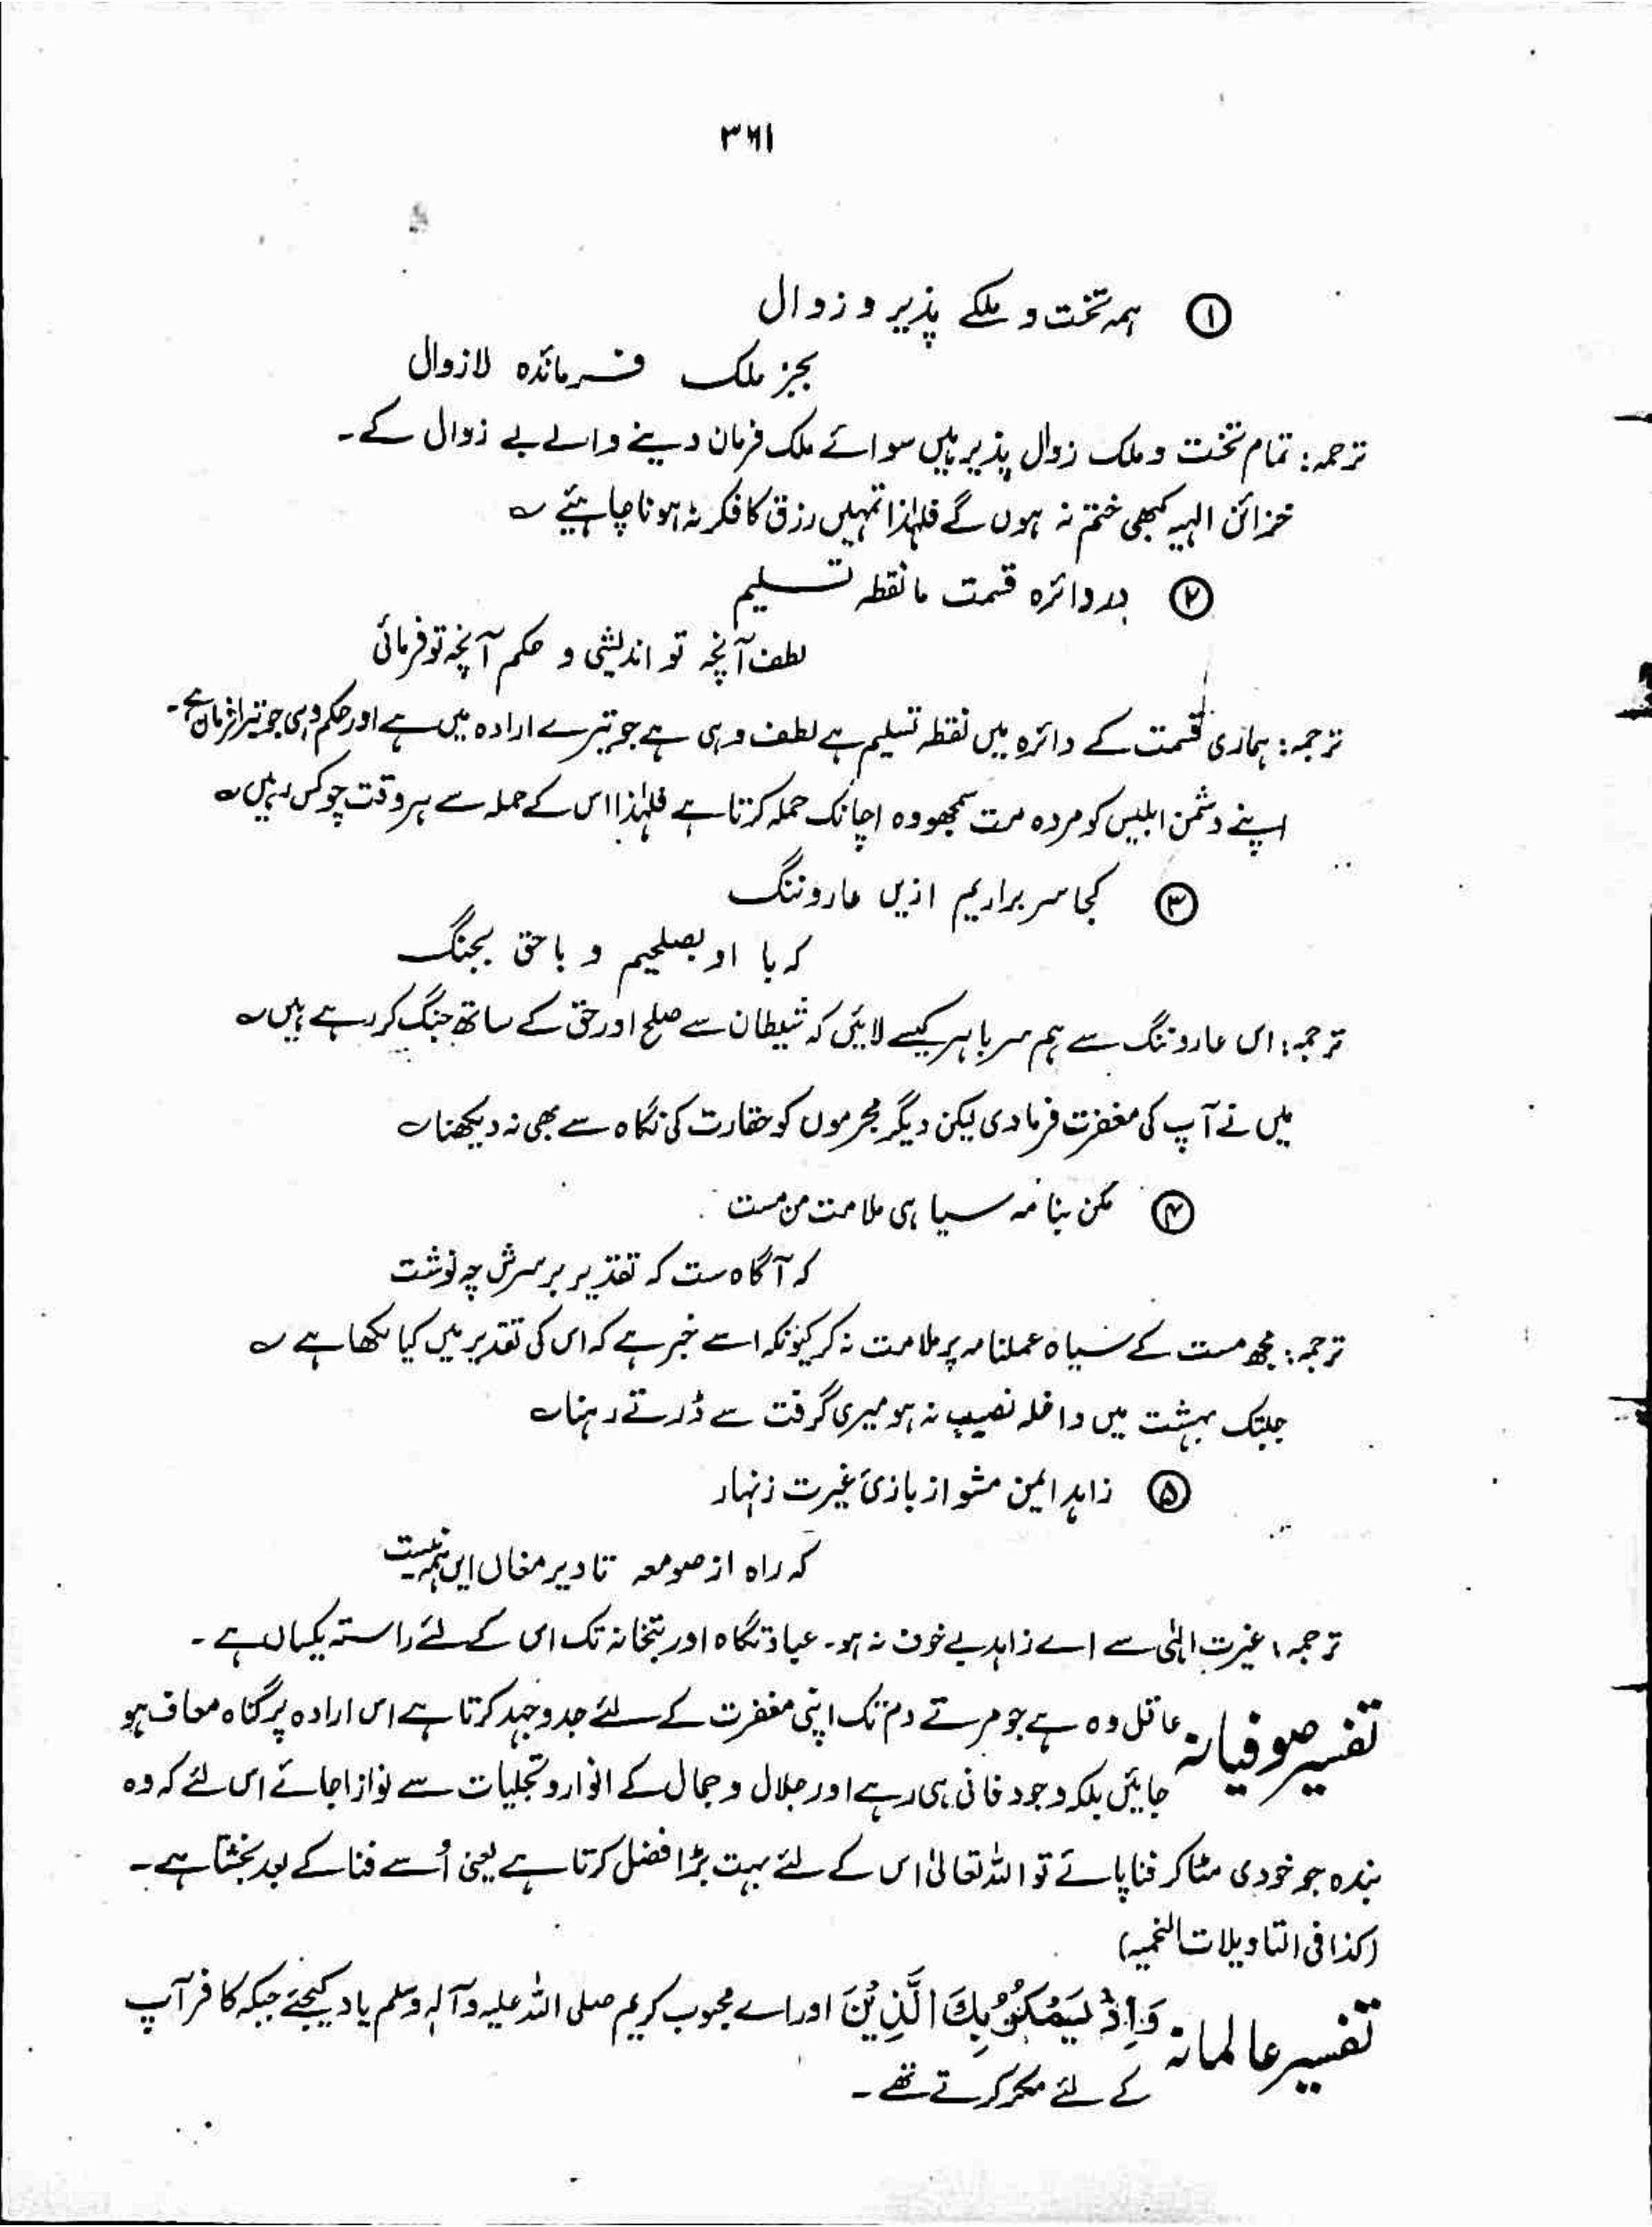 ۳۶۱
① ہمہ تخت و ملکے پذیر و زوال
بجز ملک فرمائدہ لازوال
ترجمہ: تمام تخت و ملک زوال پذیر ہیں سوائے ملک فرمان دینے والے بے زوال کے۔
خزائن الہیہ کبھی ختم نہ ہوں گے فلہٰذا تمہیں رزق کا فکر نہ ہونا چاہئیے ؎
② در دائرہ قسمت ما نقطہ تسلیم
لطف آنچہ تو اندیشی و حکم آنچہ تو فرمائی
ترجمہ: ہماری قسمت کے دائرہ میں نقطہ تسلیم ہے لطف وہی ہے جو تیرے ارادہ میں ہے اور حکم وہی جو تیرا فرمان ہے۔
اپنے دشمن ابلیس کو مردہ مت سمجھو وہ اچانک حملہ کرتا ہے فلہٰذا اس کے حملہ سے ہر وقت چوکس رہیں ؎
③ کجا سر براریم ازیں عار و ننگ
کہ با او بصلحیم و با حق بجنگ
ترجمہ: اس عار و ننگ سے ہم سر باہر کیسے لائیں کہ شیطان سے صلح اور حق کے ساتھ جنگ کر رہے ہیں ؎
میں نے آپ کی مغفرت فرمادی لیکن دیگر مجرموں کو حقارت کی نگاہ سے بھی نہ دیکھنا ؎
④ مکن بنامہ سیاہی ملامت من مست
کہ آگاہ ست کہ تقدیر بر سرش چہ نوشت
ترجمہ: مجھ مست کے سیاہ عملنامہ پر ملامت نہ کر کیونکہ اسے خبر ہے کہ اس کی تقدیر میں کیا لکھا ہے ؎
جبتک بہشت میں داخلہ نصیب نہ ہو میری گرفت سے ڈرتے رہنا ؎
⑤ زاہد ایمن مشو از بازئ غیرت زنہار
کہ راہ از صومعہ تا دیر مغاں ایں ہمہ نیست
ترجمہ: غیرت الٰہی سے اے زاہد بے خوف نہ ہو۔ عبادتگاہ اور بتخانہ تک اس کے لئے راستہ یکساں ہے۔
تفسیر صوفیانہ عاقل وہ ہے جو مرتے دم تک اپنی مغفرت کے لئے جدوجہد کرتا ہے اس ارادہ پر گناہ معاف ہو
جائیں بلکہ وجود فانی ہی رہے اور جلال و جمال کے انوار و تجلیات سے نوازا جائے اس لئے کہ وہ
بندہ جو خودی مٹا کر فنا پائے تو اللہ تعالیٰ اس کے لئے بہت بڑا فضل کرتا ہے یعنی اُسے فنا کے بعد بخشتا ہے۔
(کذا فی التاویلات النجمیہ)
تفسیر عالمانہ وَاِذْ یَمْکُرُ بِكَ الَّذِیْنَ اور اے محبوب کریم صلی اللہ علیہ وآلہٖ وسلم یاد کیجئے جبکہ کافر آپ
کے لئے مکر کرتے تھے۔